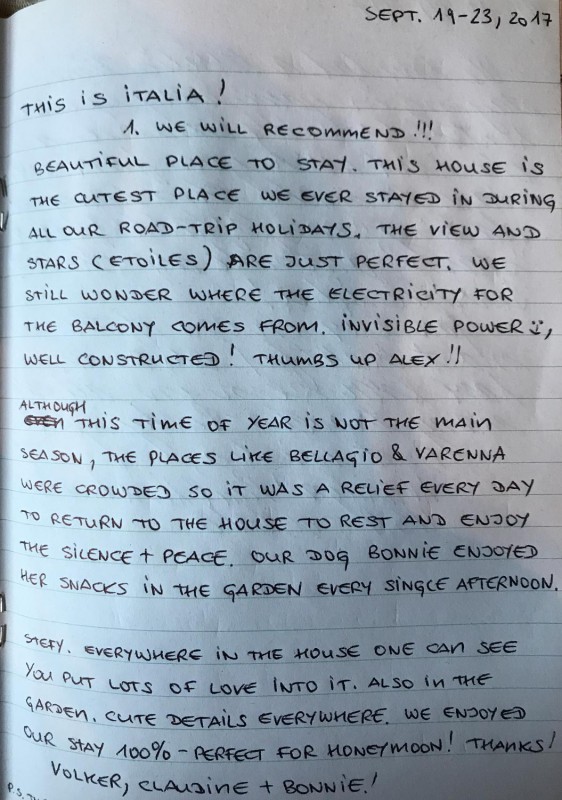 SEPT. 19-23, 2017
THIS IS ITALIA!
1. WE WILL RECOMMEND!!!
BEAUTIFUL PLACE TO STAY. THIS HOUSE IS
THE CUTEST PLACE WE EVER STAYED IN DURING
ALL OUR ROAD-TRIP HOLIDAYS. THE VIEW AND
STARS (ETOILES) ARE JUST PERFECT. WE
STILL WONDER WHERE THE ELECTRICITY FOR
THE BALCONY COMES FROM. INVISIBLE POWER :),
WELL CONSTRUCTED! THUMBS UP ALEX!!
ALTHOUGH
EVEN THIS TIME OF YEAR IS NOT THE MAIN
SEASON, THE PLACES LIKE BELLAGIO & VARENNA
WERE CROWDED SO IT WAS A RELIEF EVERY DAY
TO RETURN TO THE HOUSE TO REST AND ENJOY
THE SILENCE + PEACE. OUR DOG BONNIE ENJOYED
HER SNACKS IN THE GARDEN EVERY SINGLE AFTERNOON.
STEFY. EVERYWHERE IN THE HOUSE ONE CAN SEE
YOU PUT LOTS OF LOVE INTO IT. ALSO IN THE
GARDEN. CUTE DETAILS EVERYWHERE. WE ENJOYED
OUR STAY 100% - PERFECT FOR HONEYMOON! THANKS!
VOLKER, CLAUDINE + BONNIE!
P.S.